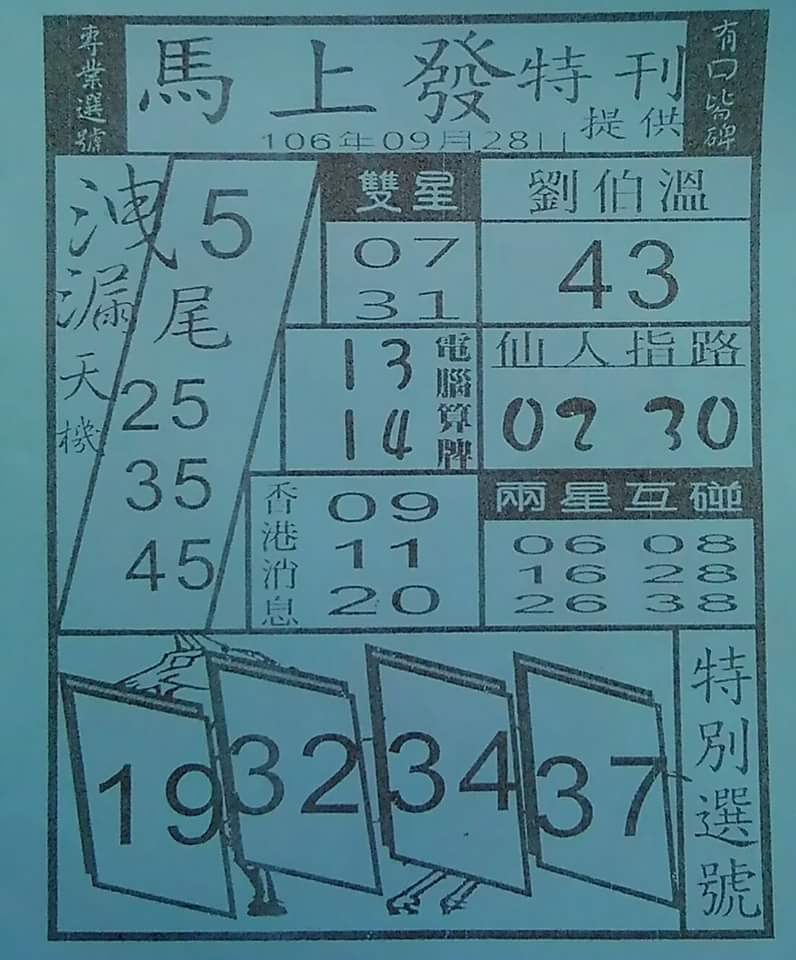 專業選號
馬上發特刊
提供
106年09月28日
有口皆碑
洩漏天機
5
尾
25
35
45
雙星
07
31
劉伯溫
43
電腦算牌
13
14
仙人指路
02 30
香港消息
09
11
20
兩星互碰
06 08
16 28
26 38
19 32 34 37
特別選號